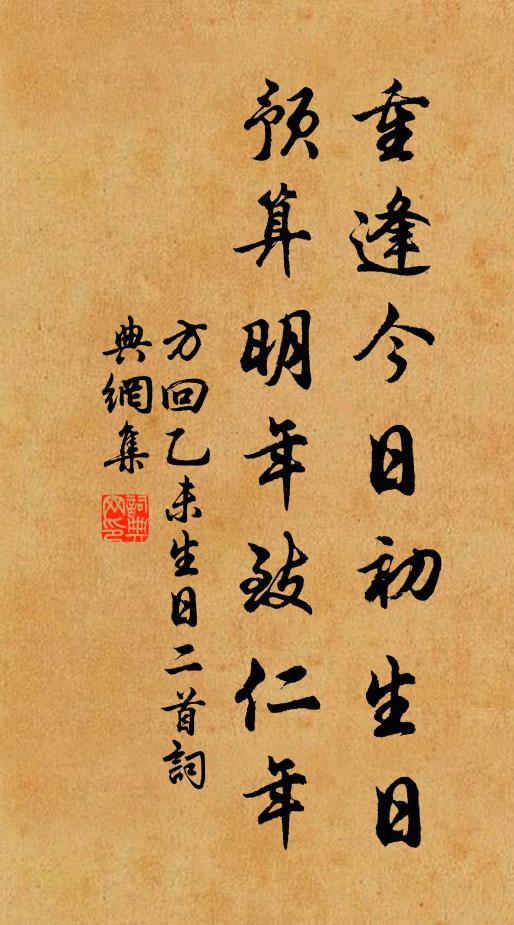 重逢今日初生日
預算明年致仁年
方回乙未生日二首詞
典網集
詞典
网印